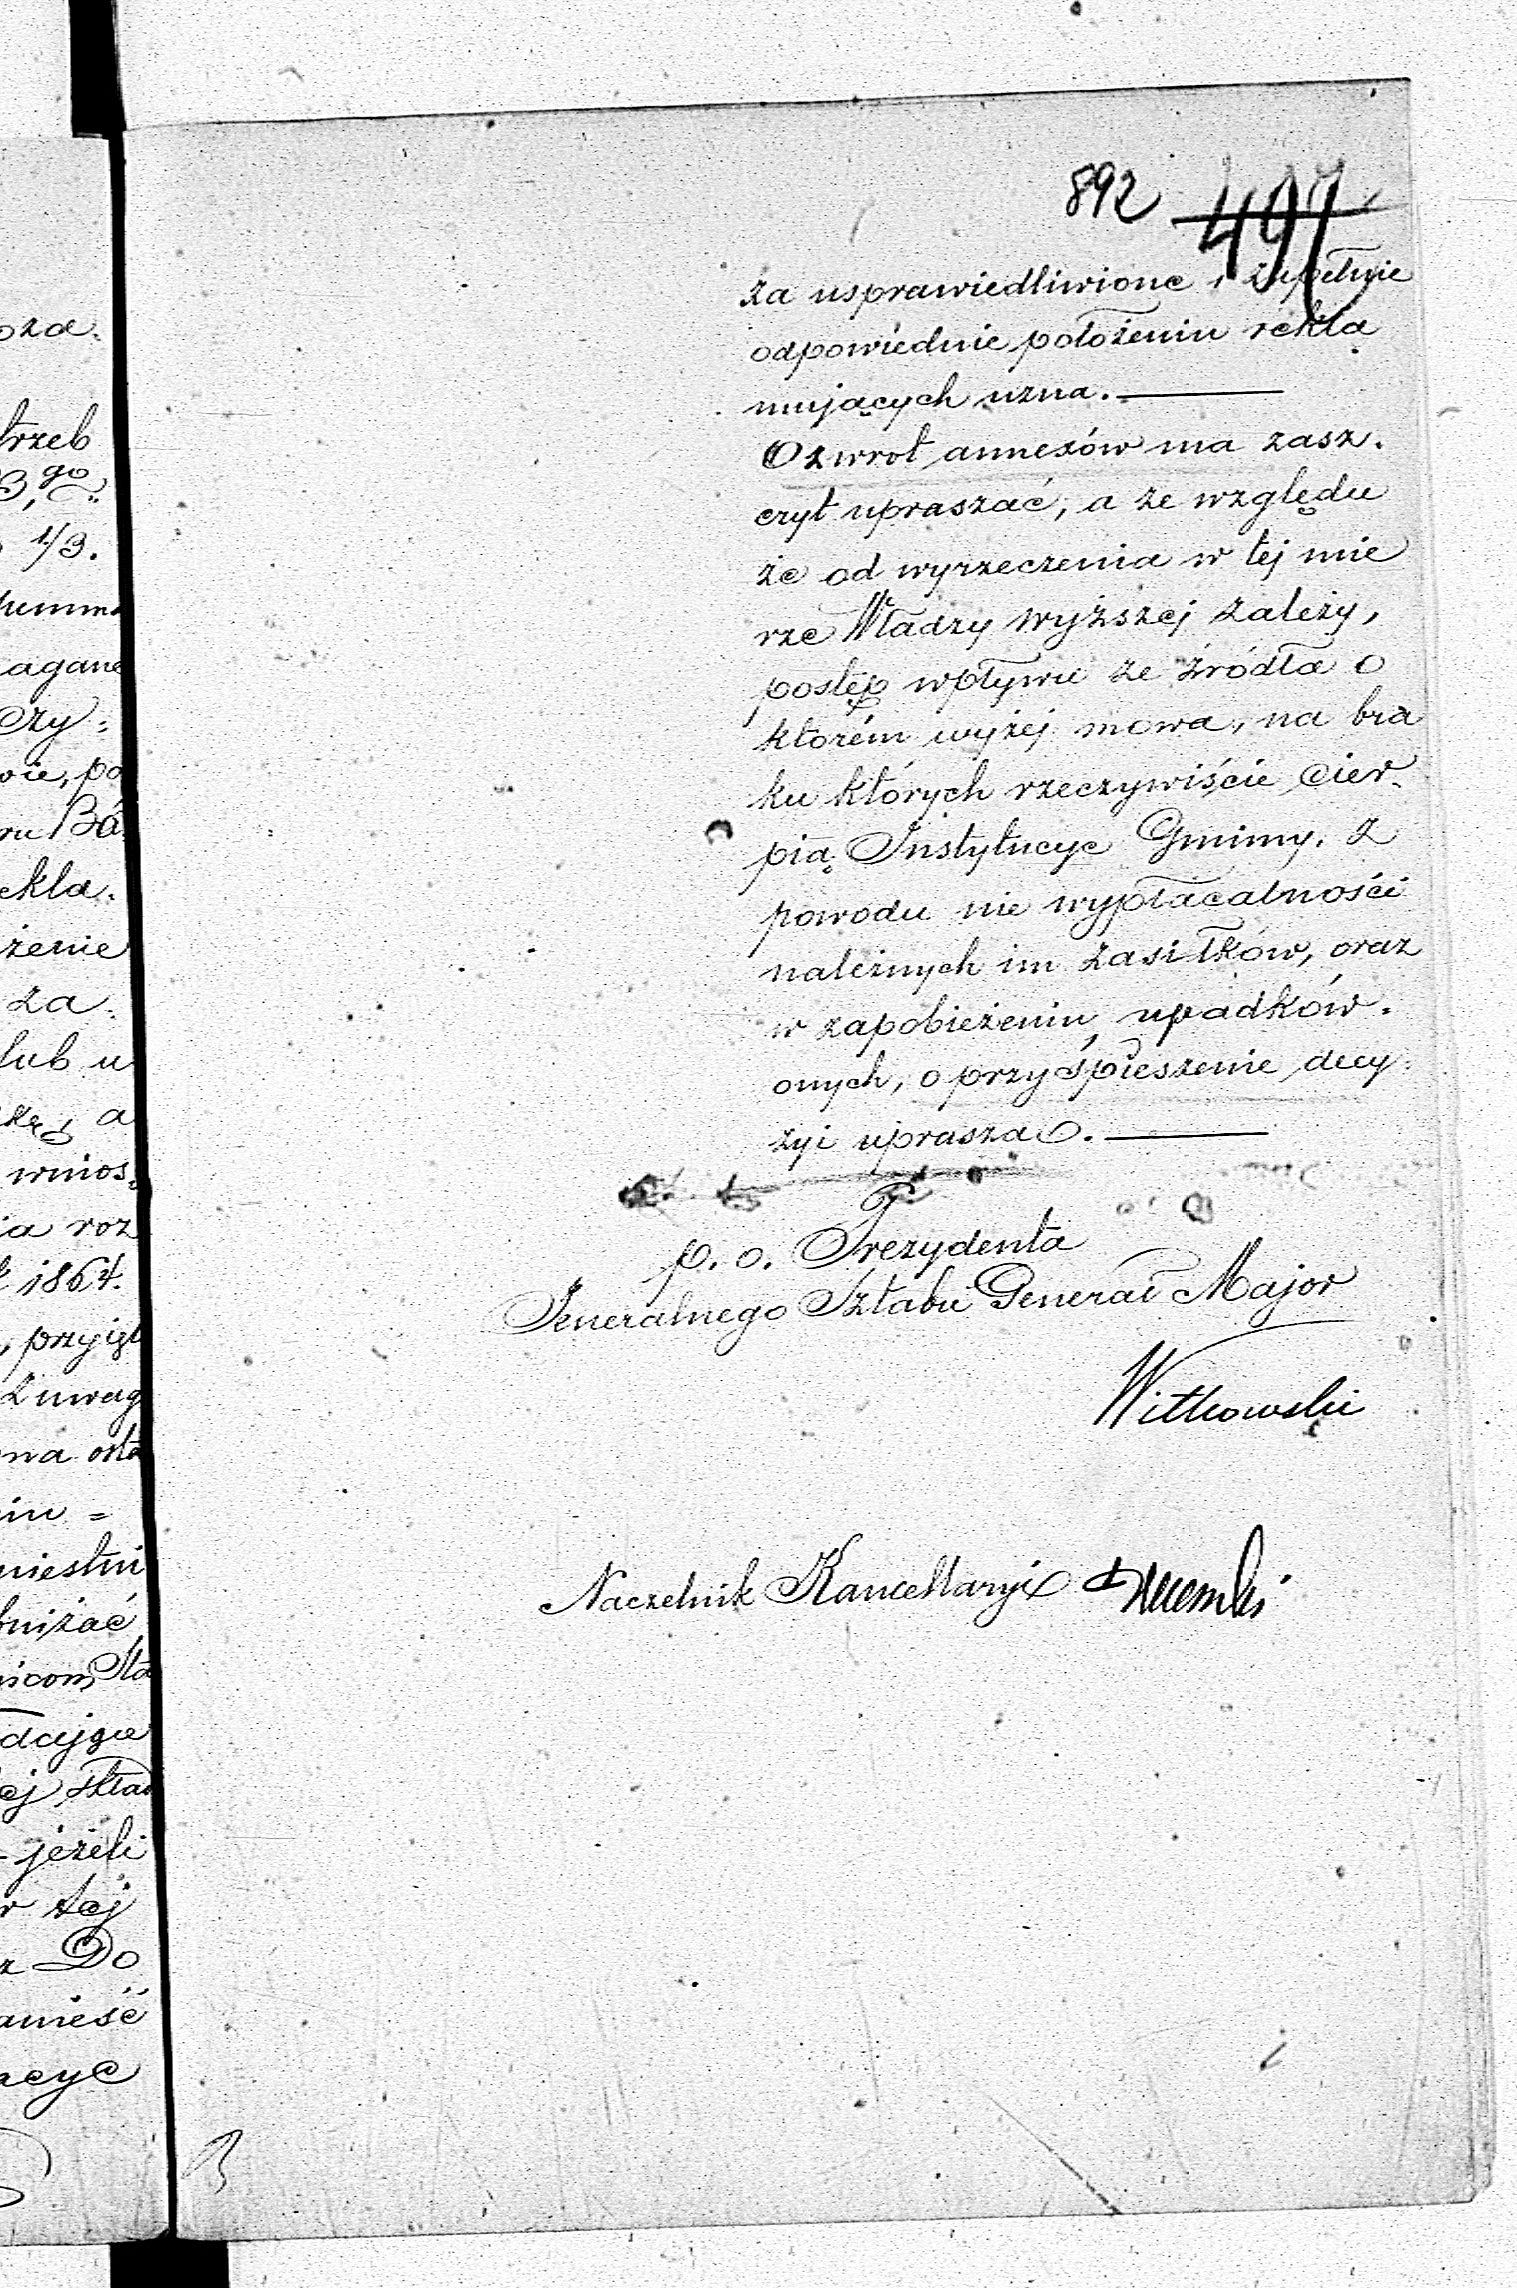 892 497
za usprawiedliwione i zupełnie
odpowiednie położeniu rekla
mujących uzna. —
O zwrot annexów ma zasz.
czyt upraszać, a ze względu
że od wyrzeczenia w tej mie
rze Władzy wyższej zależy,
postęp wpływu ze źródła o
którém wyżej mowa, na bra
ku których rzeczywiście cier.
pią Instytucye Gminy, z
powodu nie wypłacalności
należnych im zasiłków, oraz
w zapobieżeniu upadków.
onych, o przyśpieszenie decy.
zyi uprasza. —
p. o. Prezydenta
Jeneralnego Sztabu Generał Major
Witkowski
Naczelnik Kancellaryi
oza.
trzeb
3,go
1/3.
summa
agane
czy:
wie, po
ru Bá
ekla.
żenie
za.
lub u
a
wnios.
ia roz
1864.
przyjęt
z uwag
na osta
iu =
miestni
bniżać
icom Sta
dcyję
ej Skład
jeżeli
w tej
z Do
amieść
acye